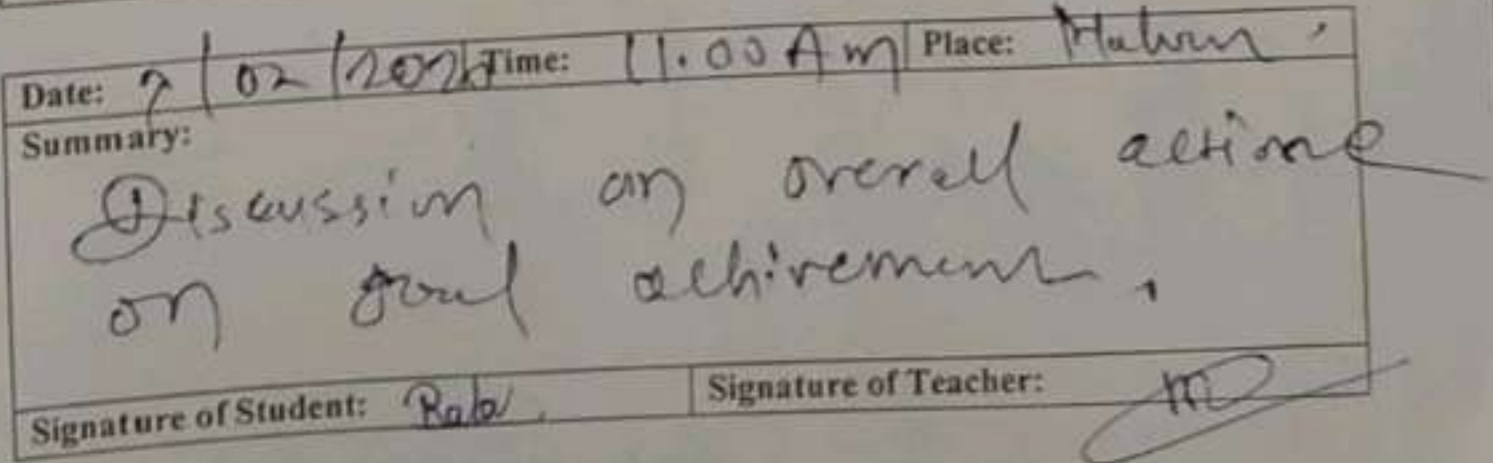 Date: 7/02/202 Time: 11.00 Am Place:
Summary:
Discussion on overall
on goal achirement.
Signature of Student: Signature of Teacher: